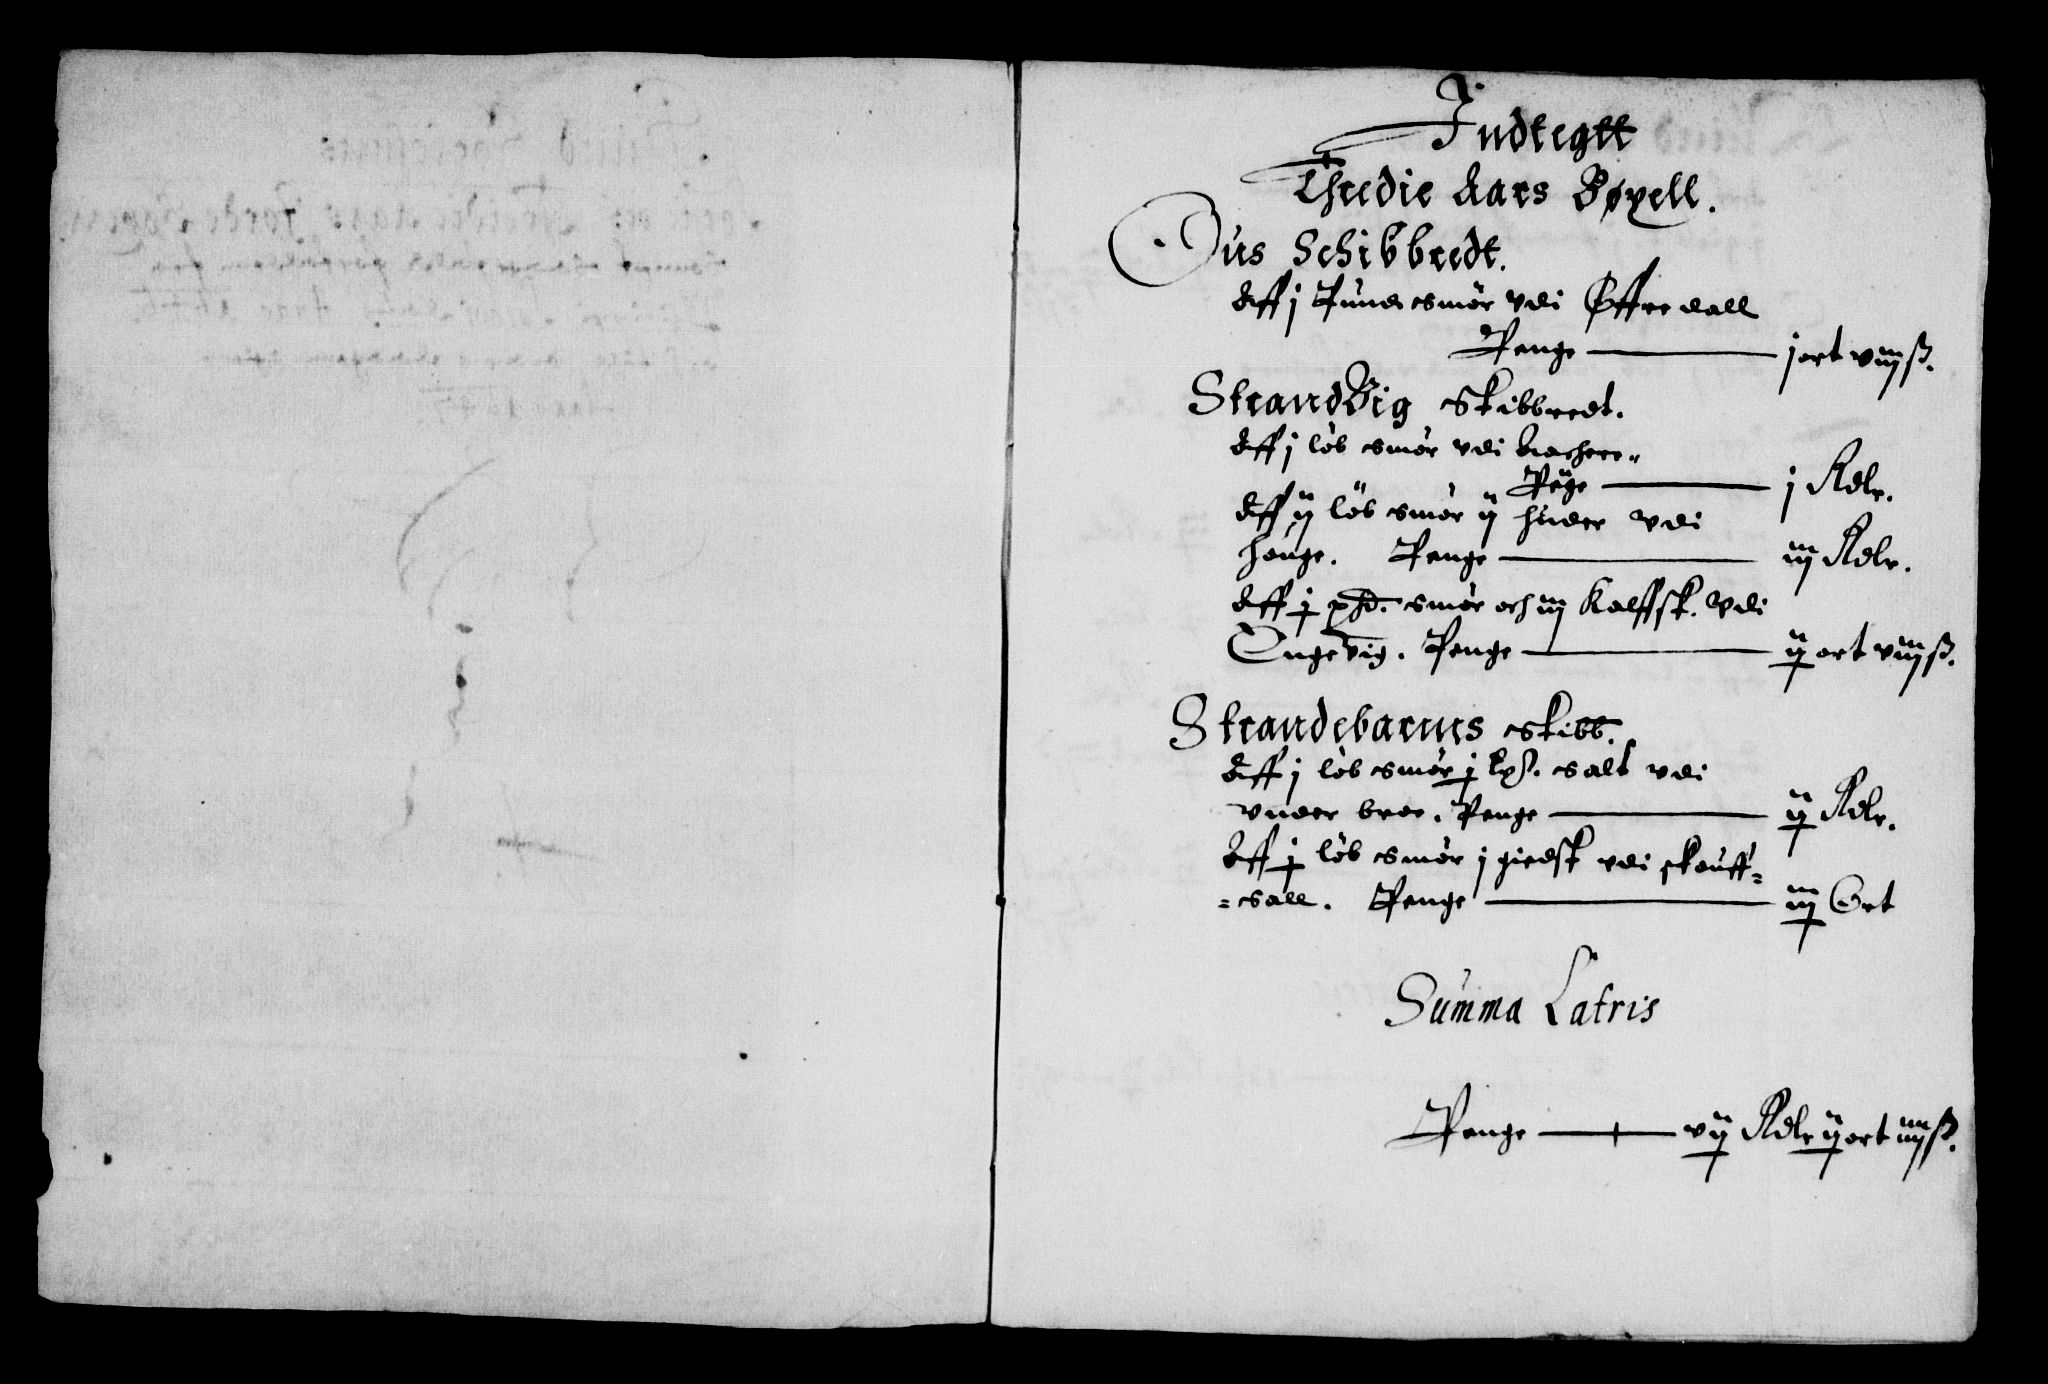 Indtegtt
Thredie Aars Bøxell.
Ous Schibbredt.
Aff j Pund smør vdi Øffredall
Penge — j ort viij ß.
Strandvig Skibbredt.
Aff j løb smør vdi
Penge — j Rdlr.
Aff ij løb smør ij huder vdi
hauge. Penge — iij Rdlr.
Aff j pd. smør och iij Kalffsk. vdi
Engevig. Penge — ij ort viij ß.
Strandebarms skibb.
Aff j løb smør j lpß. salt vdi
vnder . Penge — ij Rdlr.
Aff j løb smør j giedsk vdi skouff-
-sall. Penge — iij Ort
Summa Latris
Penge — vij Rdlr ij ort iiij ß.